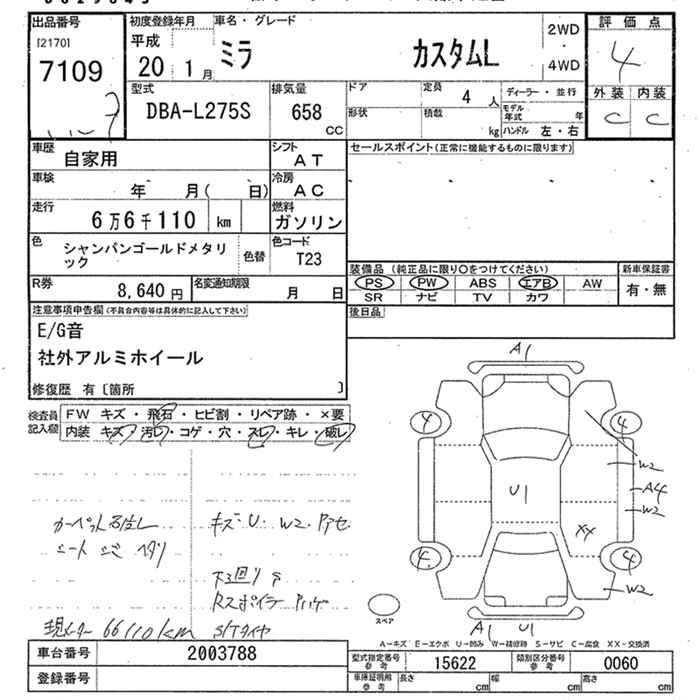 出品番号
[2170]
7109
初度登録年月
平成
20 1月
車名・グレード
ミラ カスタムL
2WD
・
4WD
評価点
4
外装 内装
C C
型式
DBA-L275S
排気量
658
CC
ドア
定員
4人
形状
積載
kg
ディーラー・並行
モデル年式 年
ハンドル 左・右
車歴
自家用
シフト
AT
車検
年 月( 日)
冷房
AC
走行
6万6千110 km
燃料
ガソリン
色
シャンパンゴールドメタリ
ック
色替
色コード
T23
R券
8,640 円
名変通知期限
月 日
セールスポイント(正常に機能するものに限ります)
装備品 (純正品に限り○をつけてください)
PS PW ABS エアB AW
SR ナビ TV カワ
新車保証書
有・無
後日品
注意事項申告欄(不具合内容等は具体的に記入して下さい)
E/G音
社外アルミホイール
修復歴 有〔箇所 〕
検査員
記入欄
FW キズ・飛石・ヒビ割・リペア跡・×要
内装 キズ・汚レ・コゲ・穴・スレ・キレ・破レ
キズ U・W2
下回りサ
Rスポイラー
現メーター 66110km S/Tタイヤ
A1
4 4
W2
A4
W2
U1
XX
4 4
W2
スペア
A1 U1
A-キズ E-エクボ U-凹み W-補修跡 S-サビ C-腐食 XX-交換済
車台番号
2003788
登録番号
型式指定番号
参考
15622
類別区分番号
参考
0060
車庫証明用
参考
長さ cm 幅 cm 高さ cm